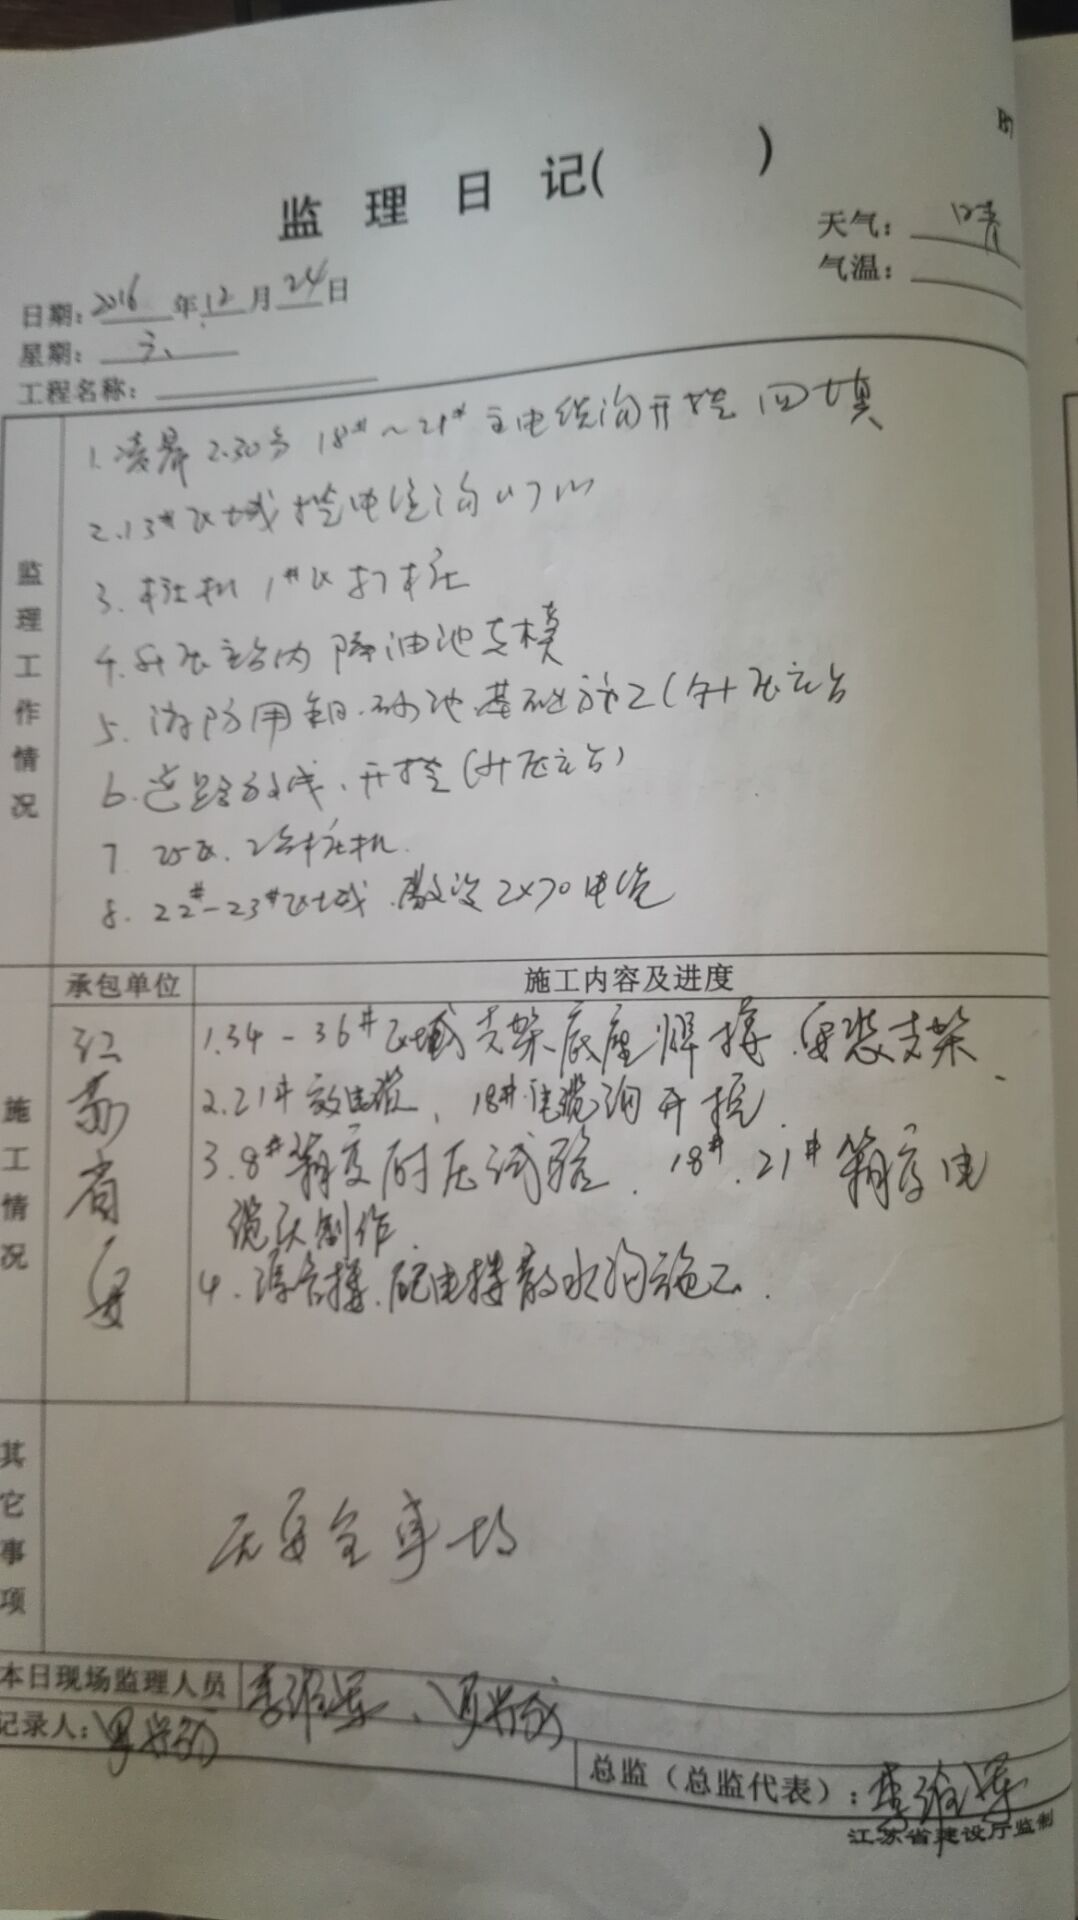 监理日记( )
天气: 晴
气温:
日期: 2016年12月24日
星期: 六
工程名称:
监理工作情况
1. 凌晨2.30分 18#~21#主电缆沟开挖回填
2. 13#区域挖电缆沟
3. 桩机1#区打桩
4. 升压站内 油池支模
5. 消防用 池基础施工(升压站
6. 道路 开挖(升压站)
7. 25区. 2台桩机.
8. 22#-23#区域.敷设2×70电缆
承包单位 施工内容及进度
施工情况
江苏省安
1. 34-36#区域支架底座焊接.安装支架
2. 21#放电缆、18#电缆沟开挖
3. 8#箱变耐压试验. 18#.21#箱变电
缆头制作.
4. 综合楼.配电楼散水沟施工.
其它事项
无安全事故
本日现场监理人员
记录人:
总监(总监代表):
江苏省建设厅监制